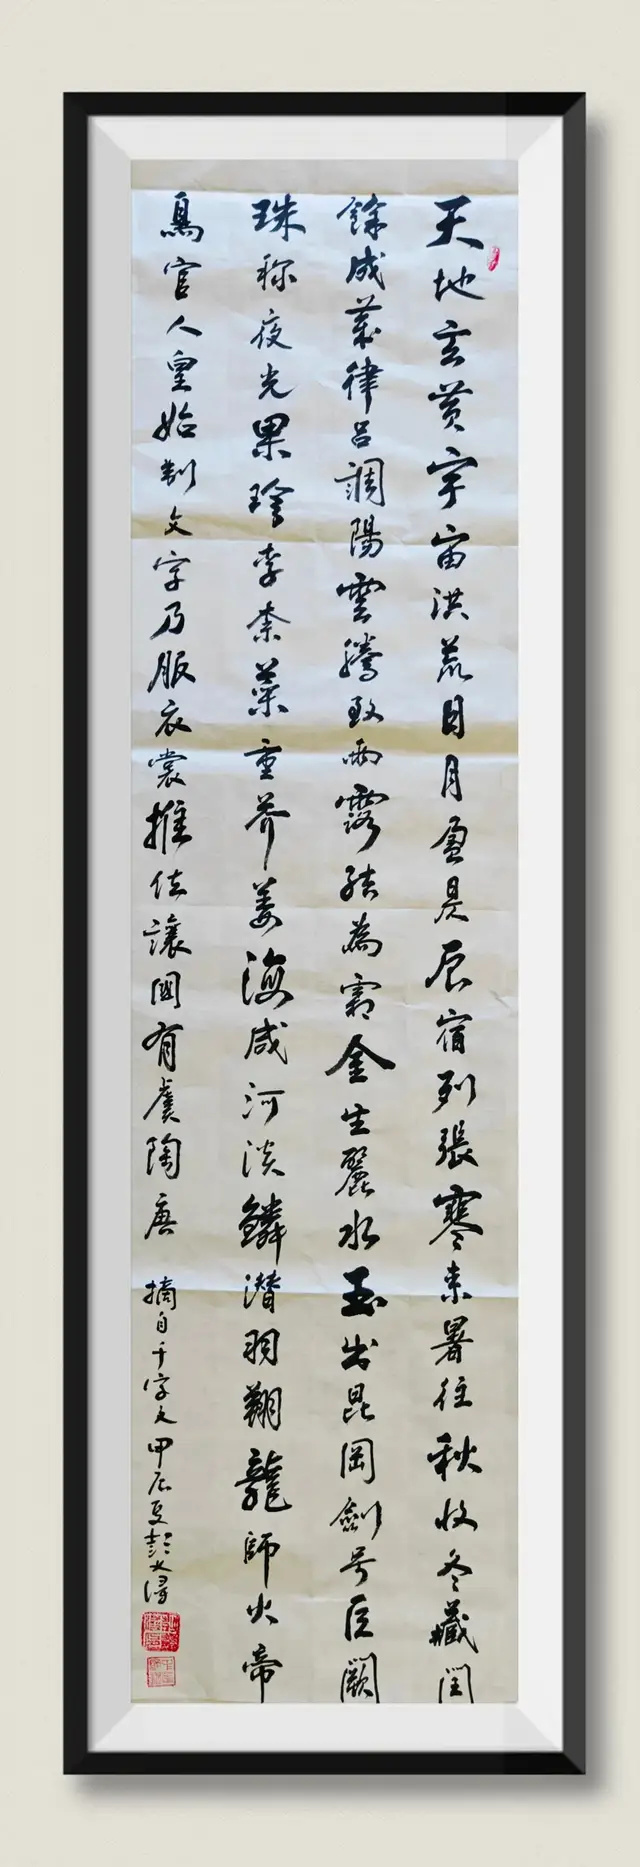 天地玄黄宇宙洪荒日月盈昃辰宿列張寒来暑往秋收冬藏閏
餘成歲律吕調陽雲騰致雨露結為霜金生麗水玉出崑岡劍号巨闕
珠称夜光果珍李柰菜重芥姜海咸河淡鱗潜羽翔龍師火帝
鳥官人皇始制文字乃服衣裳推位讓國有虞陶唐
摘自千字文甲辰夏彭